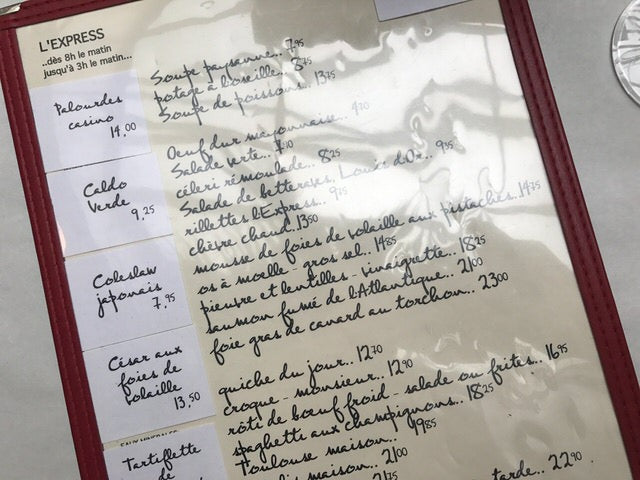 L'EXPRESS
..dès 8h le matin
jusqu'à 3h le matin...
Palourdes
casino
14.00
Caldo
Verde
9.25
Coleslaw
japonais
7.95
César aux
foies de
volaille
13.50
EAUX MINÉRALES
Tartiflette
de
Soupe paysanne... 7.95
potage à l'oseille... 8.75
Soupe de poissons... 13.75
Oeuf dur mayonnaise... 4.70
Salade verte...
céleri rémoulade... 8.25
Salade de betteraves, Louis d'Or... 9.35
rillettes L'Express...
chèvre chaud... 13.50
mousse de foies de volaille aux pistaches... 14.75
os à moelle - gros sel... 14.85
pieuvre et lentilles - vinaigrette... 18.25
saumon fumé de l'Atlantique... 21.00
foie gras de canard au torchon... 23.00
quiche du jour... 12.70
croque - monsieur... 12.90
rôti de boeuf froid - salade ou frites... 16.95
spaghetti aux champignons... 18.25
Toulouse maison... 19.85
maison... 21.00
tarde... 22.90